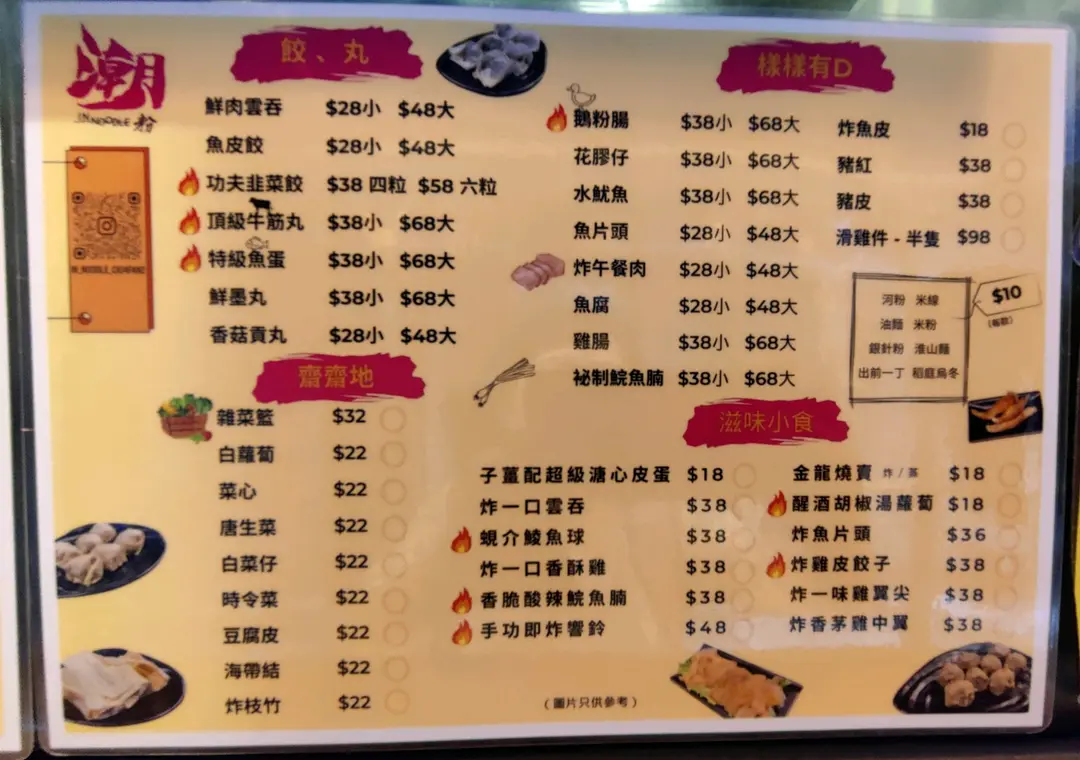 潮
IN NOODLE 粉
餃、丸
鮮肉雲吞 $28小 $48大
魚皮餃 $28小 $48大
功夫韭菜餃 $38 四粒 $58 六粒
頂級牛筋丸 $38小 $68大
特級魚蛋 $38小 $68大
鮮墨丸 $38小 $68大
香菇貢丸 $28小 $48大
齋齋地
雜菜籃 $32
白蘿蔔 $22
菜心 $22
唐生菜 $22
白菜仔 $22
時令菜 $22
豆腐皮 $22
海帶結 $22
炸枝竹 $22
樣樣有D
鵝粉腸 $38小 $68大
花膠仔 $38小 $68大
水魷魚 $38小 $68大
魚片頭 $28小 $48大
炸午餐肉 $28小 $48大
魚腐 $28小 $48大
雞腸 $38小 $68大
祕制鯇魚腩 $38小 $68大
炸魚皮 $18
豬紅 $38
豬皮 $38
滑雞件 - 半隻 $98
河粉 米線
油麵 米粉
銀針粉 淮山麵
出前一丁 稻庭烏冬
$10
滋味小食
子薑配超級溏心皮蛋 $18
炸一口雲吞 $38
蜆介鯪魚球 $38
炸一口香酥雞 $38
香脆酸辣鯇魚腩 $38
手功即炸響鈴 $48
金龍燒賣 炸/蒸 $18
醒酒胡椒湯蘿蔔 $18
炸魚片頭 $36
炸雞皮餃子 $38
炸一味雞翼尖 $38
炸香茅雞中翼 $38
(圖片只供參考)